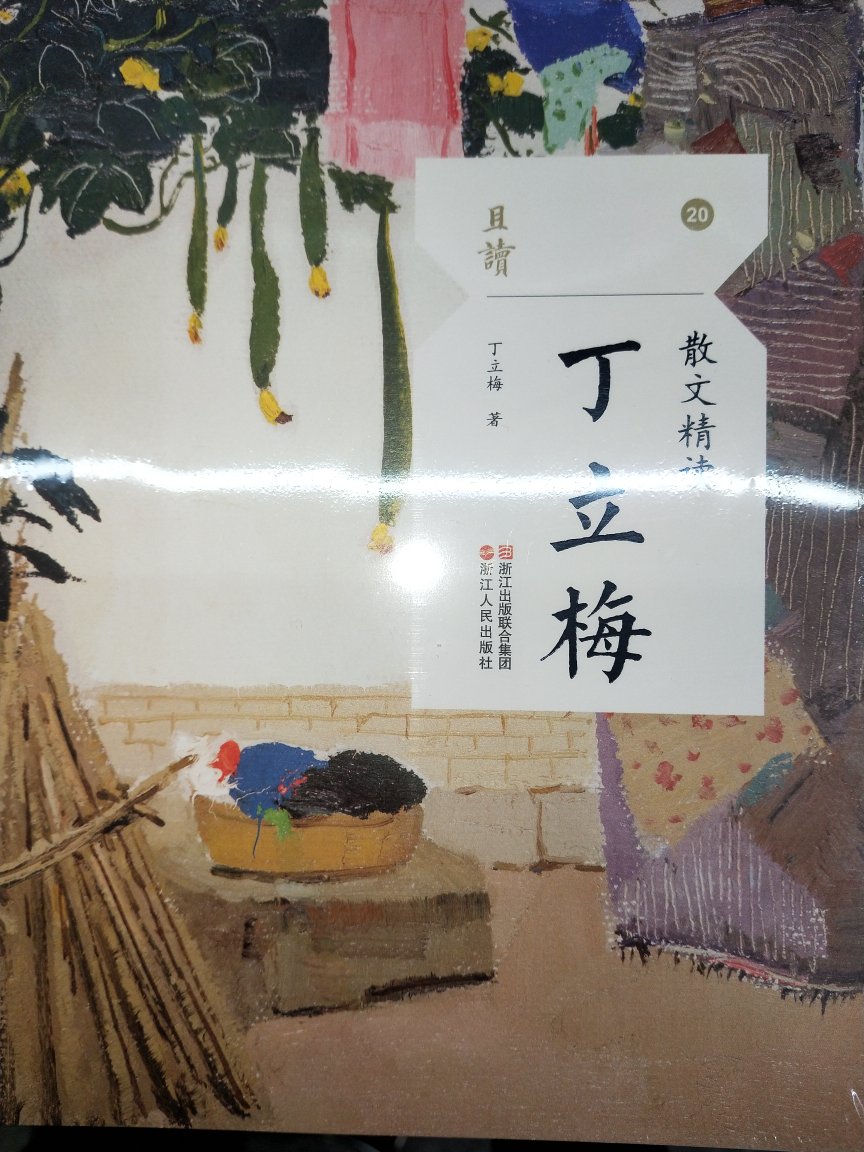 且讀
20
散文精读
丁立梅
丁立梅 著
浙江出版联合集团
浙江人民出版社